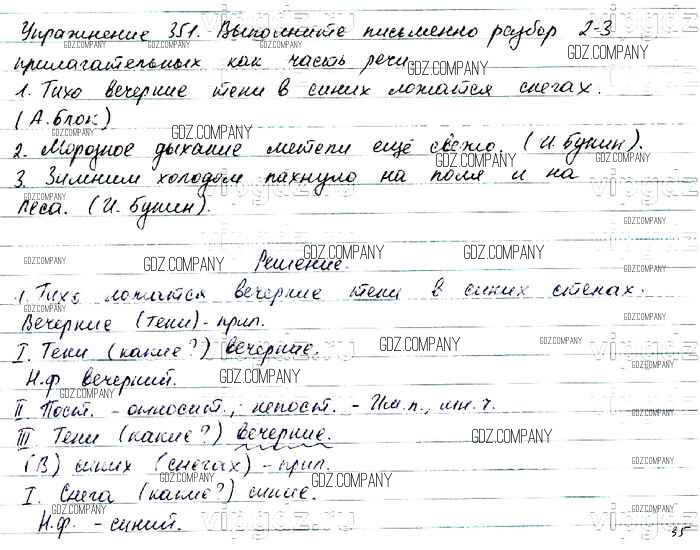 Упражнение 351. Выполните письменно разбор 2-3
прилагательных как часть речи
1. Тихо вечерние тени в синих ложатся снегах.
(А. Блок)
2. Морозное дыхание метели ещё свежо. (И. Бунин).
3. Зимним холодом пахнуло на поля и на
леса. (И. Бунин).
Решение.
1. Тихо ложатся вечерние тени в синих стенах.
Вечерние (тени) - прил.
I. Тени (какие?) вечерние.
Н.ф вечерний.
II Пост. - относит., непост. - Им.п., мн.ч.
III Тени (какие?) вечерние.
(В) синих (снегах) - прил.
I. Снега (какие?) синие.
Н.ф. - синий.
35
GDZ.COMPANY
vipgdz.ru